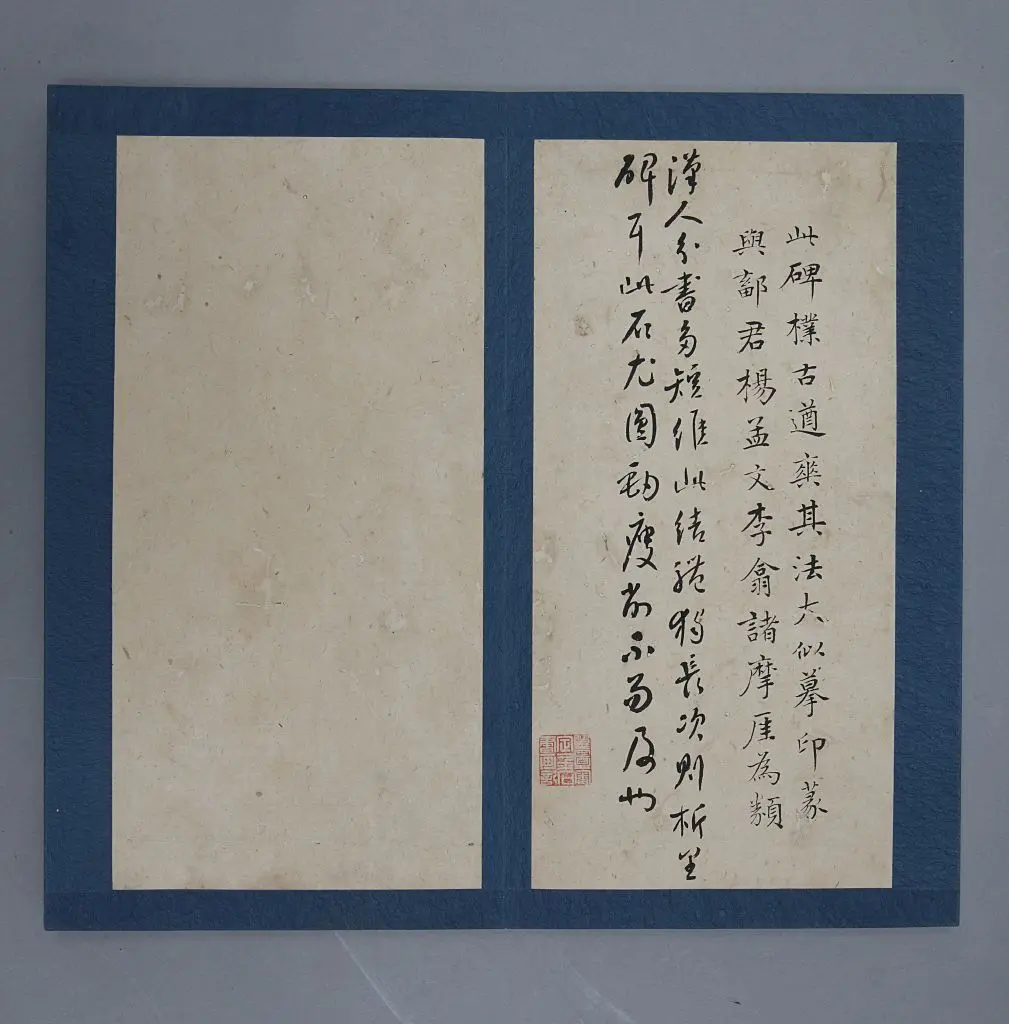 此碑樸古遒爽其法大似摹印篆
與鄐君楊孟文李翕諸摩厓為類
漢人分書多短維此結體獨長次則析里
碑耳此石尤圓勁瘦削不易及也